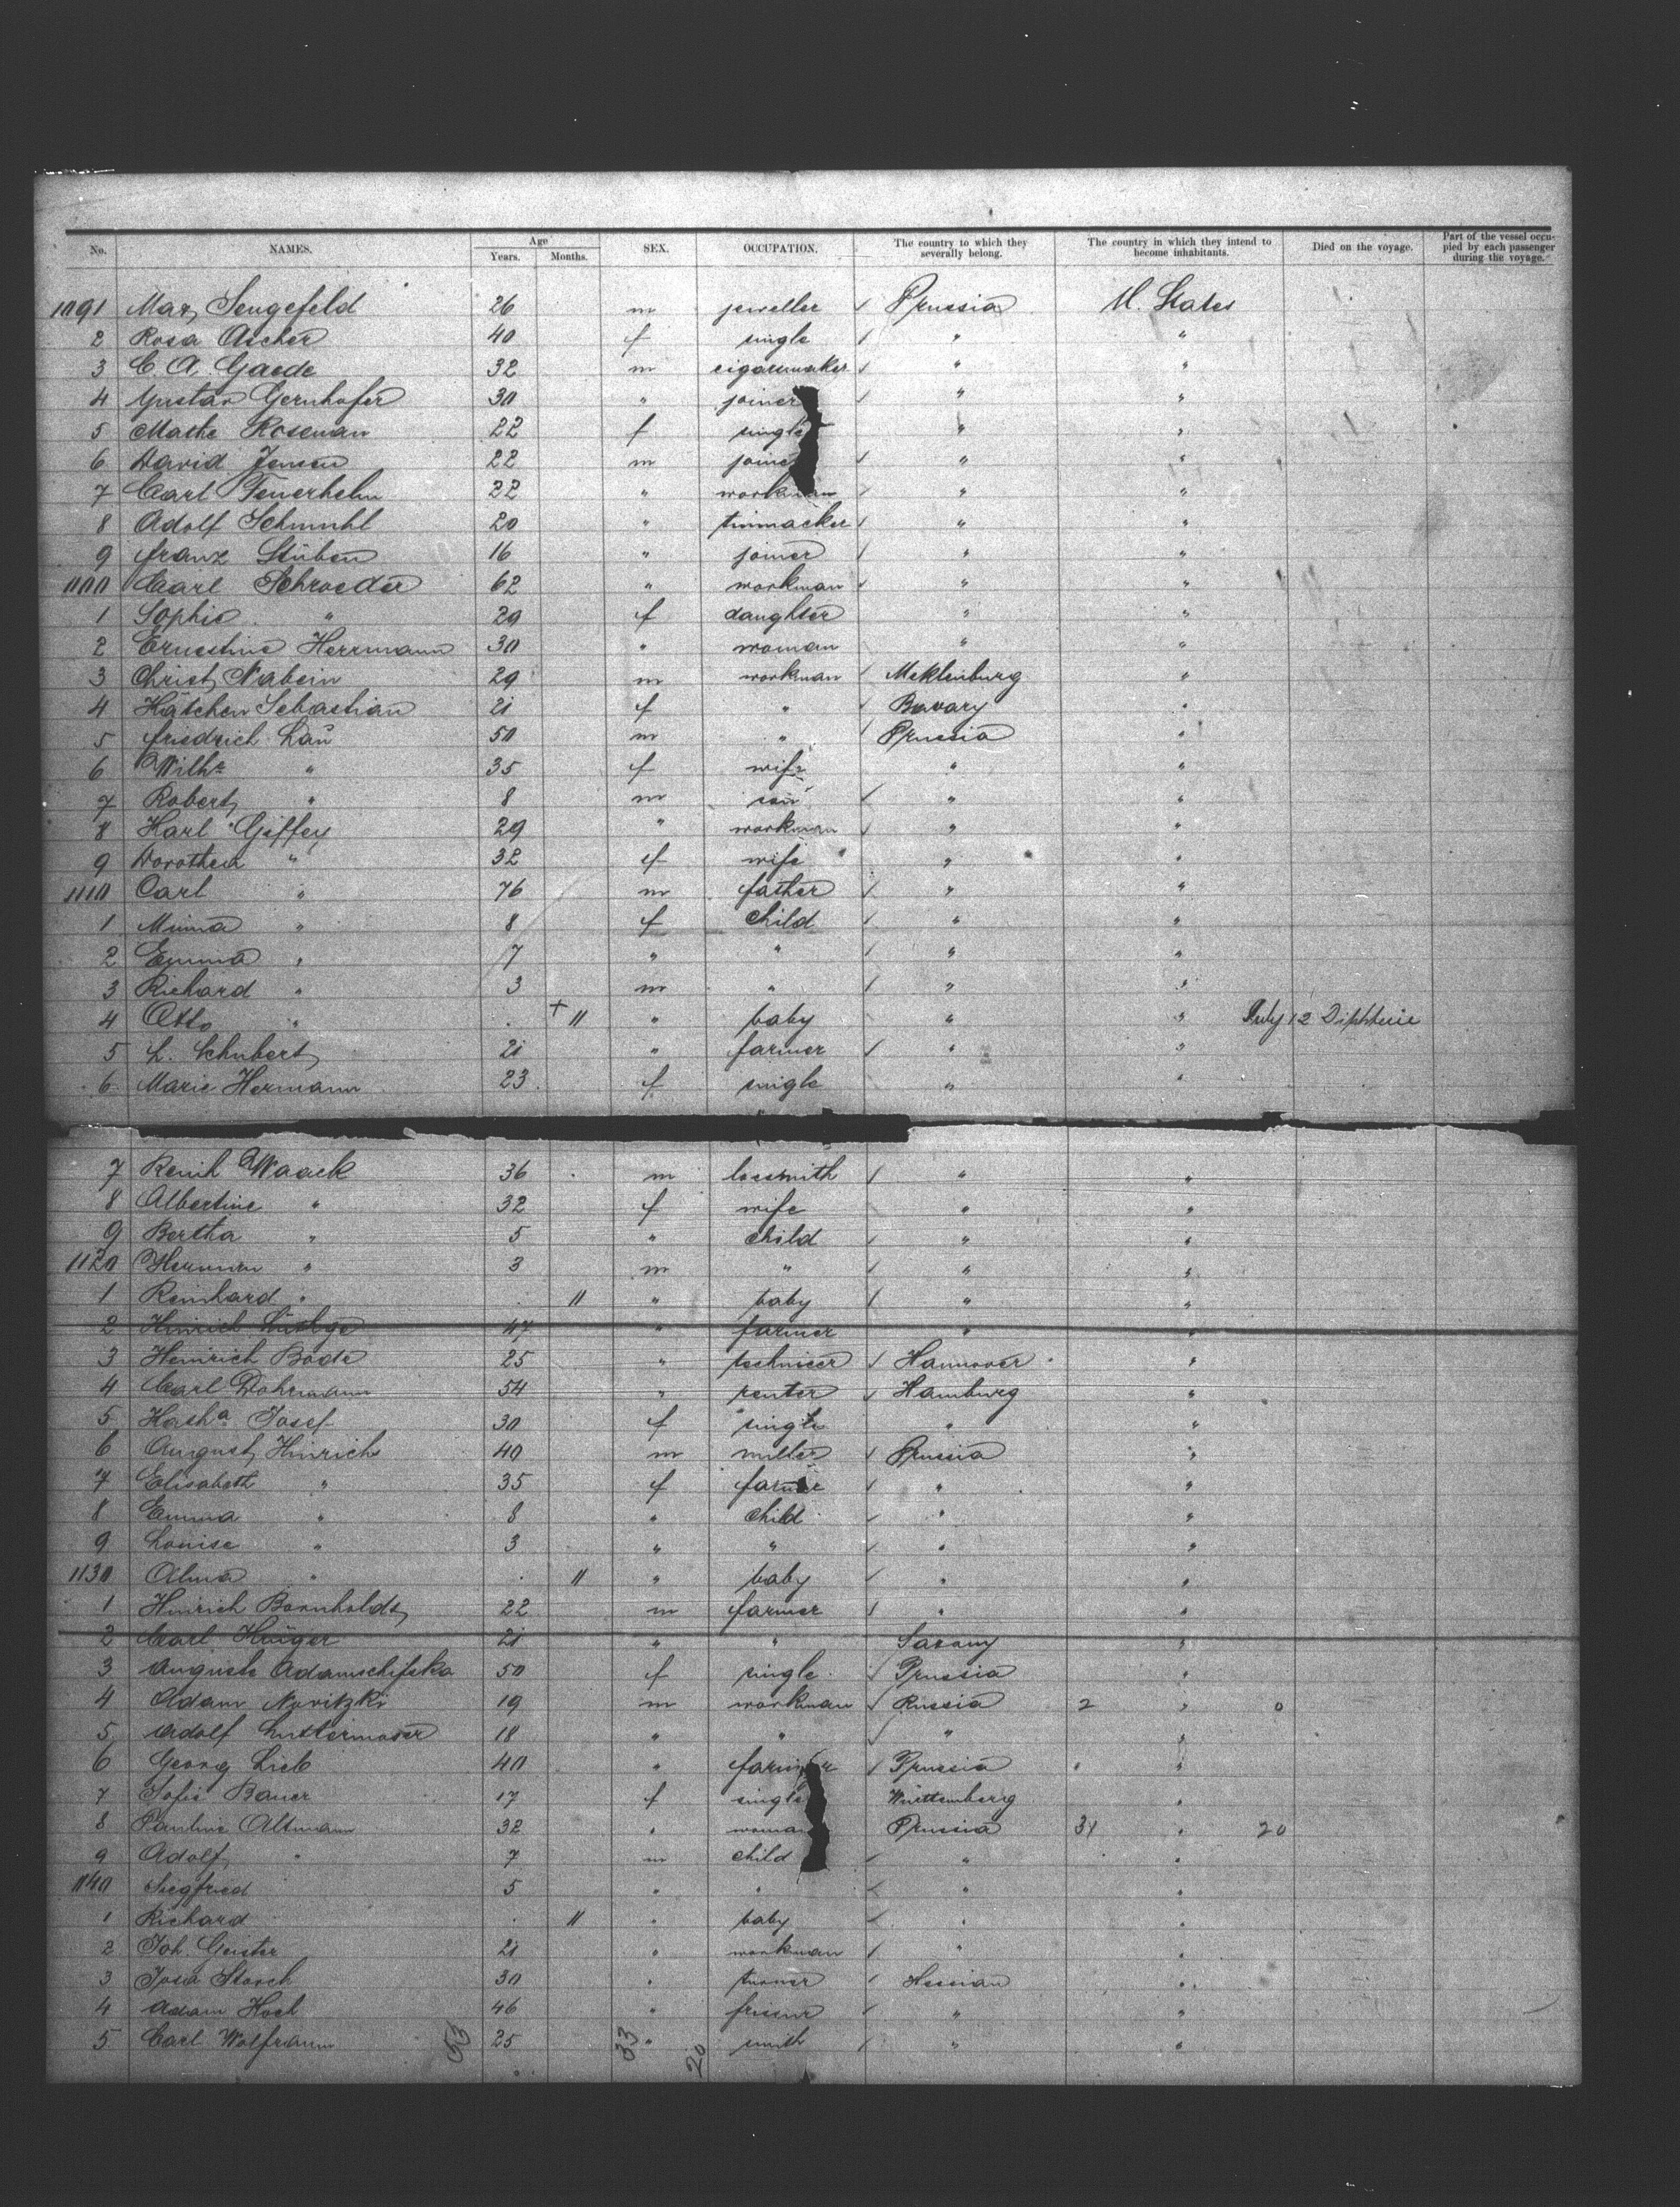 No. NAMES. Age Years. Months. SEX. OCCUPATION. The country to which they severally belong. The country in which they intend to become inhabitants. Died on the voyage. Part of the vessel occupied by each passenger during the voyage.
1091 Max Sengefeld 26 m jeweller / Prussia U. States
2 Rosa Ascher 40 f single / " "
3 C. A. Gaede 32 m cigarrmaker / " "
4 Gustav Gernhofer 30 " joiner / " "
5 Mathe Roseman 22 f single " "
6 David Jensen 22 m joiner / " "
7 Carl Feuerhelm 22 " workman / " "
8 Adolf Schmuhl 20 " tinmacker / " "
9 Franz Stüben 16 " joiner / " "
1100 Carl Schroeder 62 " workman / " "
1 Sophie " 29 f daughter " "
2 Ernestine Herrmann 30 " woman " "
3 Christ Nabein 29 m workman / Meklenburg "
4 Kätchen Sebastian 21 f " / Bavary "
5 Friedrich Lau 50 m " / Prussia "
6 Wilhe " 35 f wife " "
7 Robert " 8 m son / " "
8 Karl Giffey 29 " workman / " "
9 Dorothea " 32 f wife " "
1110 Carl " 76 m father / " "
1 Minna " 8 f child / " "
2 Emma " 7 " " / " "
3 Richard " 3 m " / " "
4 Otto " . + 11 " baby " " July 12 Diphterie
5 L. Schubert 21 " farmer / " "
6 Marie Hermann 23 f single " "
7 Renih Waack 36 m locsmith / " "
8 Albertine " 32 f wife " "
9 Bertha " 5 " child / " "
1120 Herman " 3 m " / " "
1 Reinhard " . 11 " baby / " "
2 Hinrich Lüthge 47 " farmer " "
3 Heinrich Bode 25 " technicer / Hannover "
4 Carl Dohrmann 54 " renter / Hamburg "
5 Hasha Josef 30 f single " "
6 August Hinrich 40 m miller / Prussia "
7 Elisabeth " 35 f farmer / " "
8 Emma " 8 " child / " "
9 Louise " 3 " " / " "
1130 Alma " . 11 " baby / " "
1 Hinrich Bornholdt 22 m farmer / " "
2 Carl Krüger 21 " " Saxony "
3 Auguste Adamschifska 50 f single / Prussia "
4 Adam Novitzki 19 m workman / Russia 2 " 0
5 Adolf Luttermoser 18 " " / " "
6 Georg Lieb 40 " farmer / Prussia "
7 Sofie Bauer 17 f single Württemberg "
8 Pauline Altmann 32 " woman Prussia 31 " 20
9 Adolf " 7 m child / " "
1140 Siegfried 5 " " / " "
1 Richard . 11 " baby / " "
2 Joh. Geister 21 " workman / " "
3 Storch 30 " turner / Hessian "
4 Adam Hock 46 " friseur / " "
5 Carl Wolframm 25 " smith / " "
53 33 20